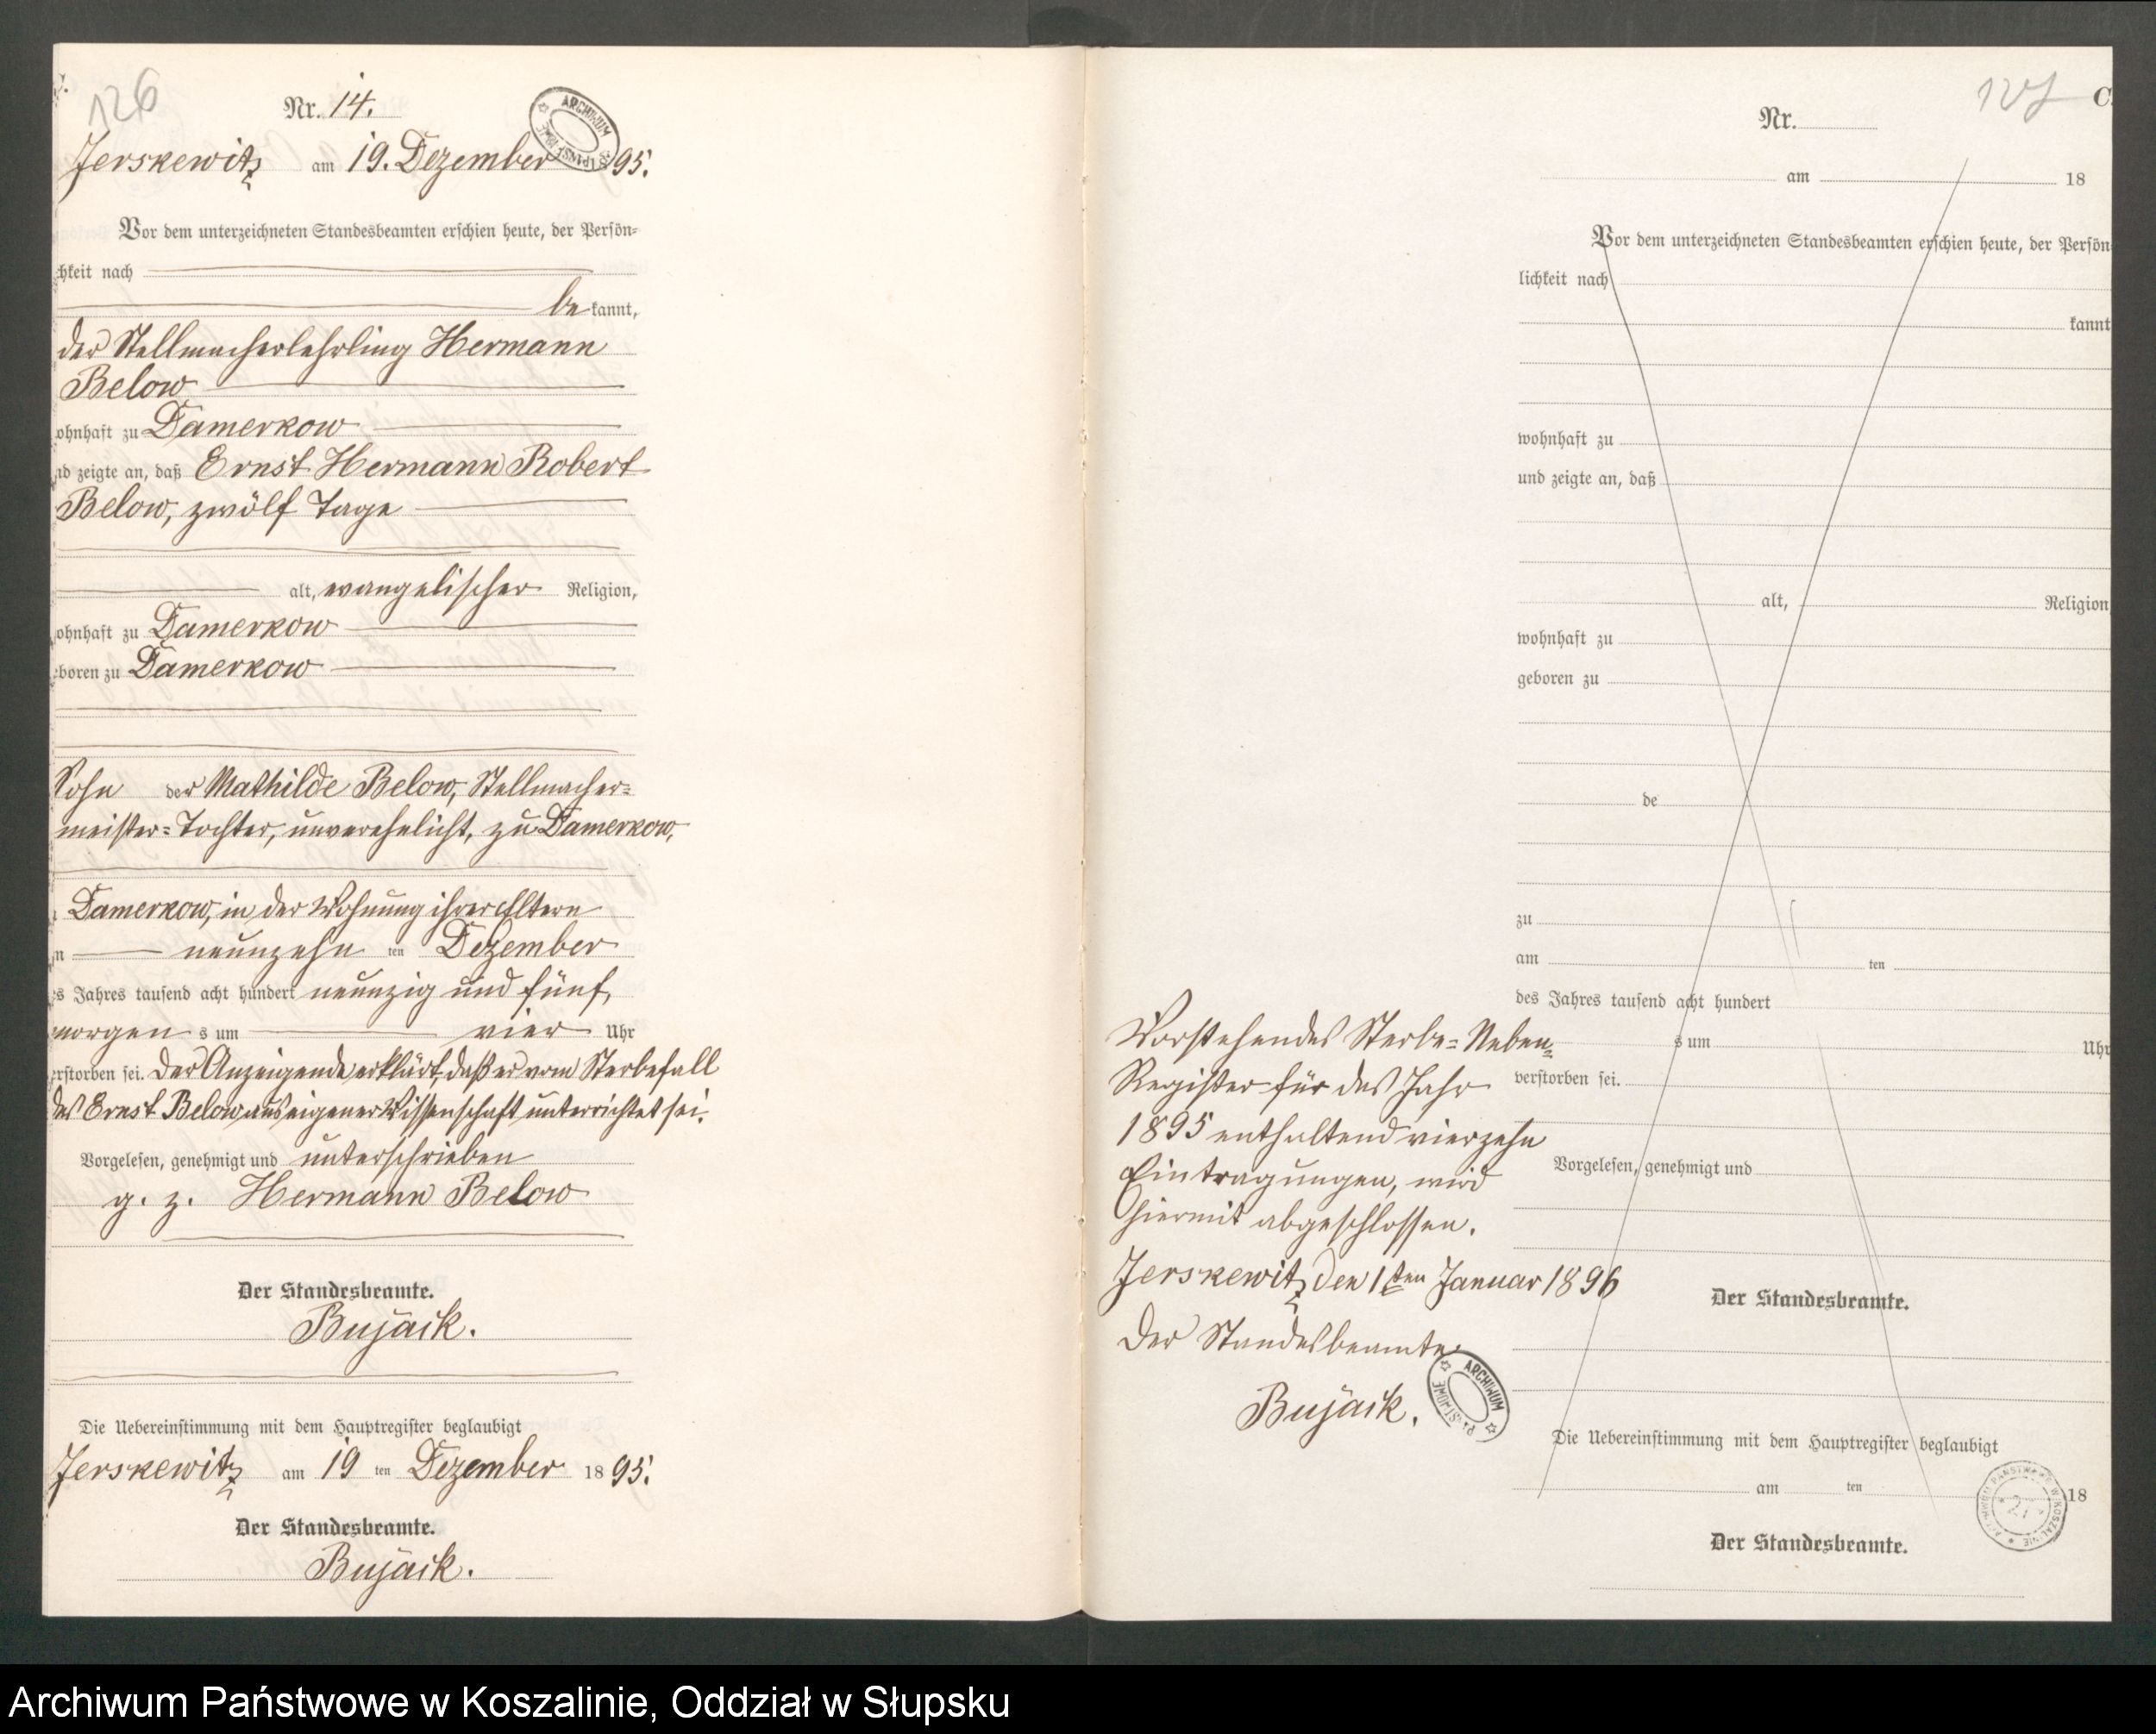 126
Nr. 14.
Jerskewitz am 19. Dezember 95.
Vor dem unterzeichneten Standesbeamten erschien heute, der Persön-
chkeit nach
be kannt,
der Stellmacherlehrling Hermann
Below
ohnhaft zu Damerkow
nd zeigte an, daß Ernst Hermann Robert
Below, zwölf Tage
alt, evangelischer Religion,
ohnhaft zu Damerkow
eboren zu Damerkow
Sohn der Mathilde Below, Stellmacher=
meister=Tochter, unverehelicht, zu Damerkow,
Damerkow, in der Wohnung ihrer Eltern
m neunzehn ten Dezember
es Jahres tausend acht hundert neunzig und fünf,
morgen s um vier Uhr
erstorben sei. Der Anzeigende erklärt, daß er vom Sterbefall
des Ernst Below aus eigener Wissenschaft unterrichtet sei.
Vorgelesen, genehmigt und unterschrieben
g. z. Hermann Below
Der Standesbeamte.
Bujack.
Die Uebereinstimmung mit dem Hauptregister beglaubigt
Jerskewitz am 19 ten Dezember 18 95.
Der Standesbeamte.
Bujack.
127
C
Nr.
am 18
Vor dem unterzeichneten Standesbeamten erschien heute, der Persön
lichkeit nach
kannt
wohnhaft zu
und zeigte an, daß
alt, Religion
wohnhaft zu
geboren zu
de
zu
am ten
des Jahres tausend acht hundert
s um Uhr
verstorben sei.
Vorgelesen, genehmigt und
Der Standesbeamte.
Die Uebereinstimmung mit dem Hauptregister beglaubigt
am ten 18
Der Standesbeamte.
Vorstehendes Sterbe=Neben=
Register für das Jahr
1895 enthaltend vierzehn
Eintragungen, wird
hiermit abgeschlossen.
Jerskewitz den 1ten Januar 1896
Der Standesbeamte.
Bujack.
ARCHIWUM
ARCHIWUM
ARCHIWUM PAŃSTWOWE W KOSZALINIE
Archiwum Państwowe w Koszalinie, Oddział w Słupsku